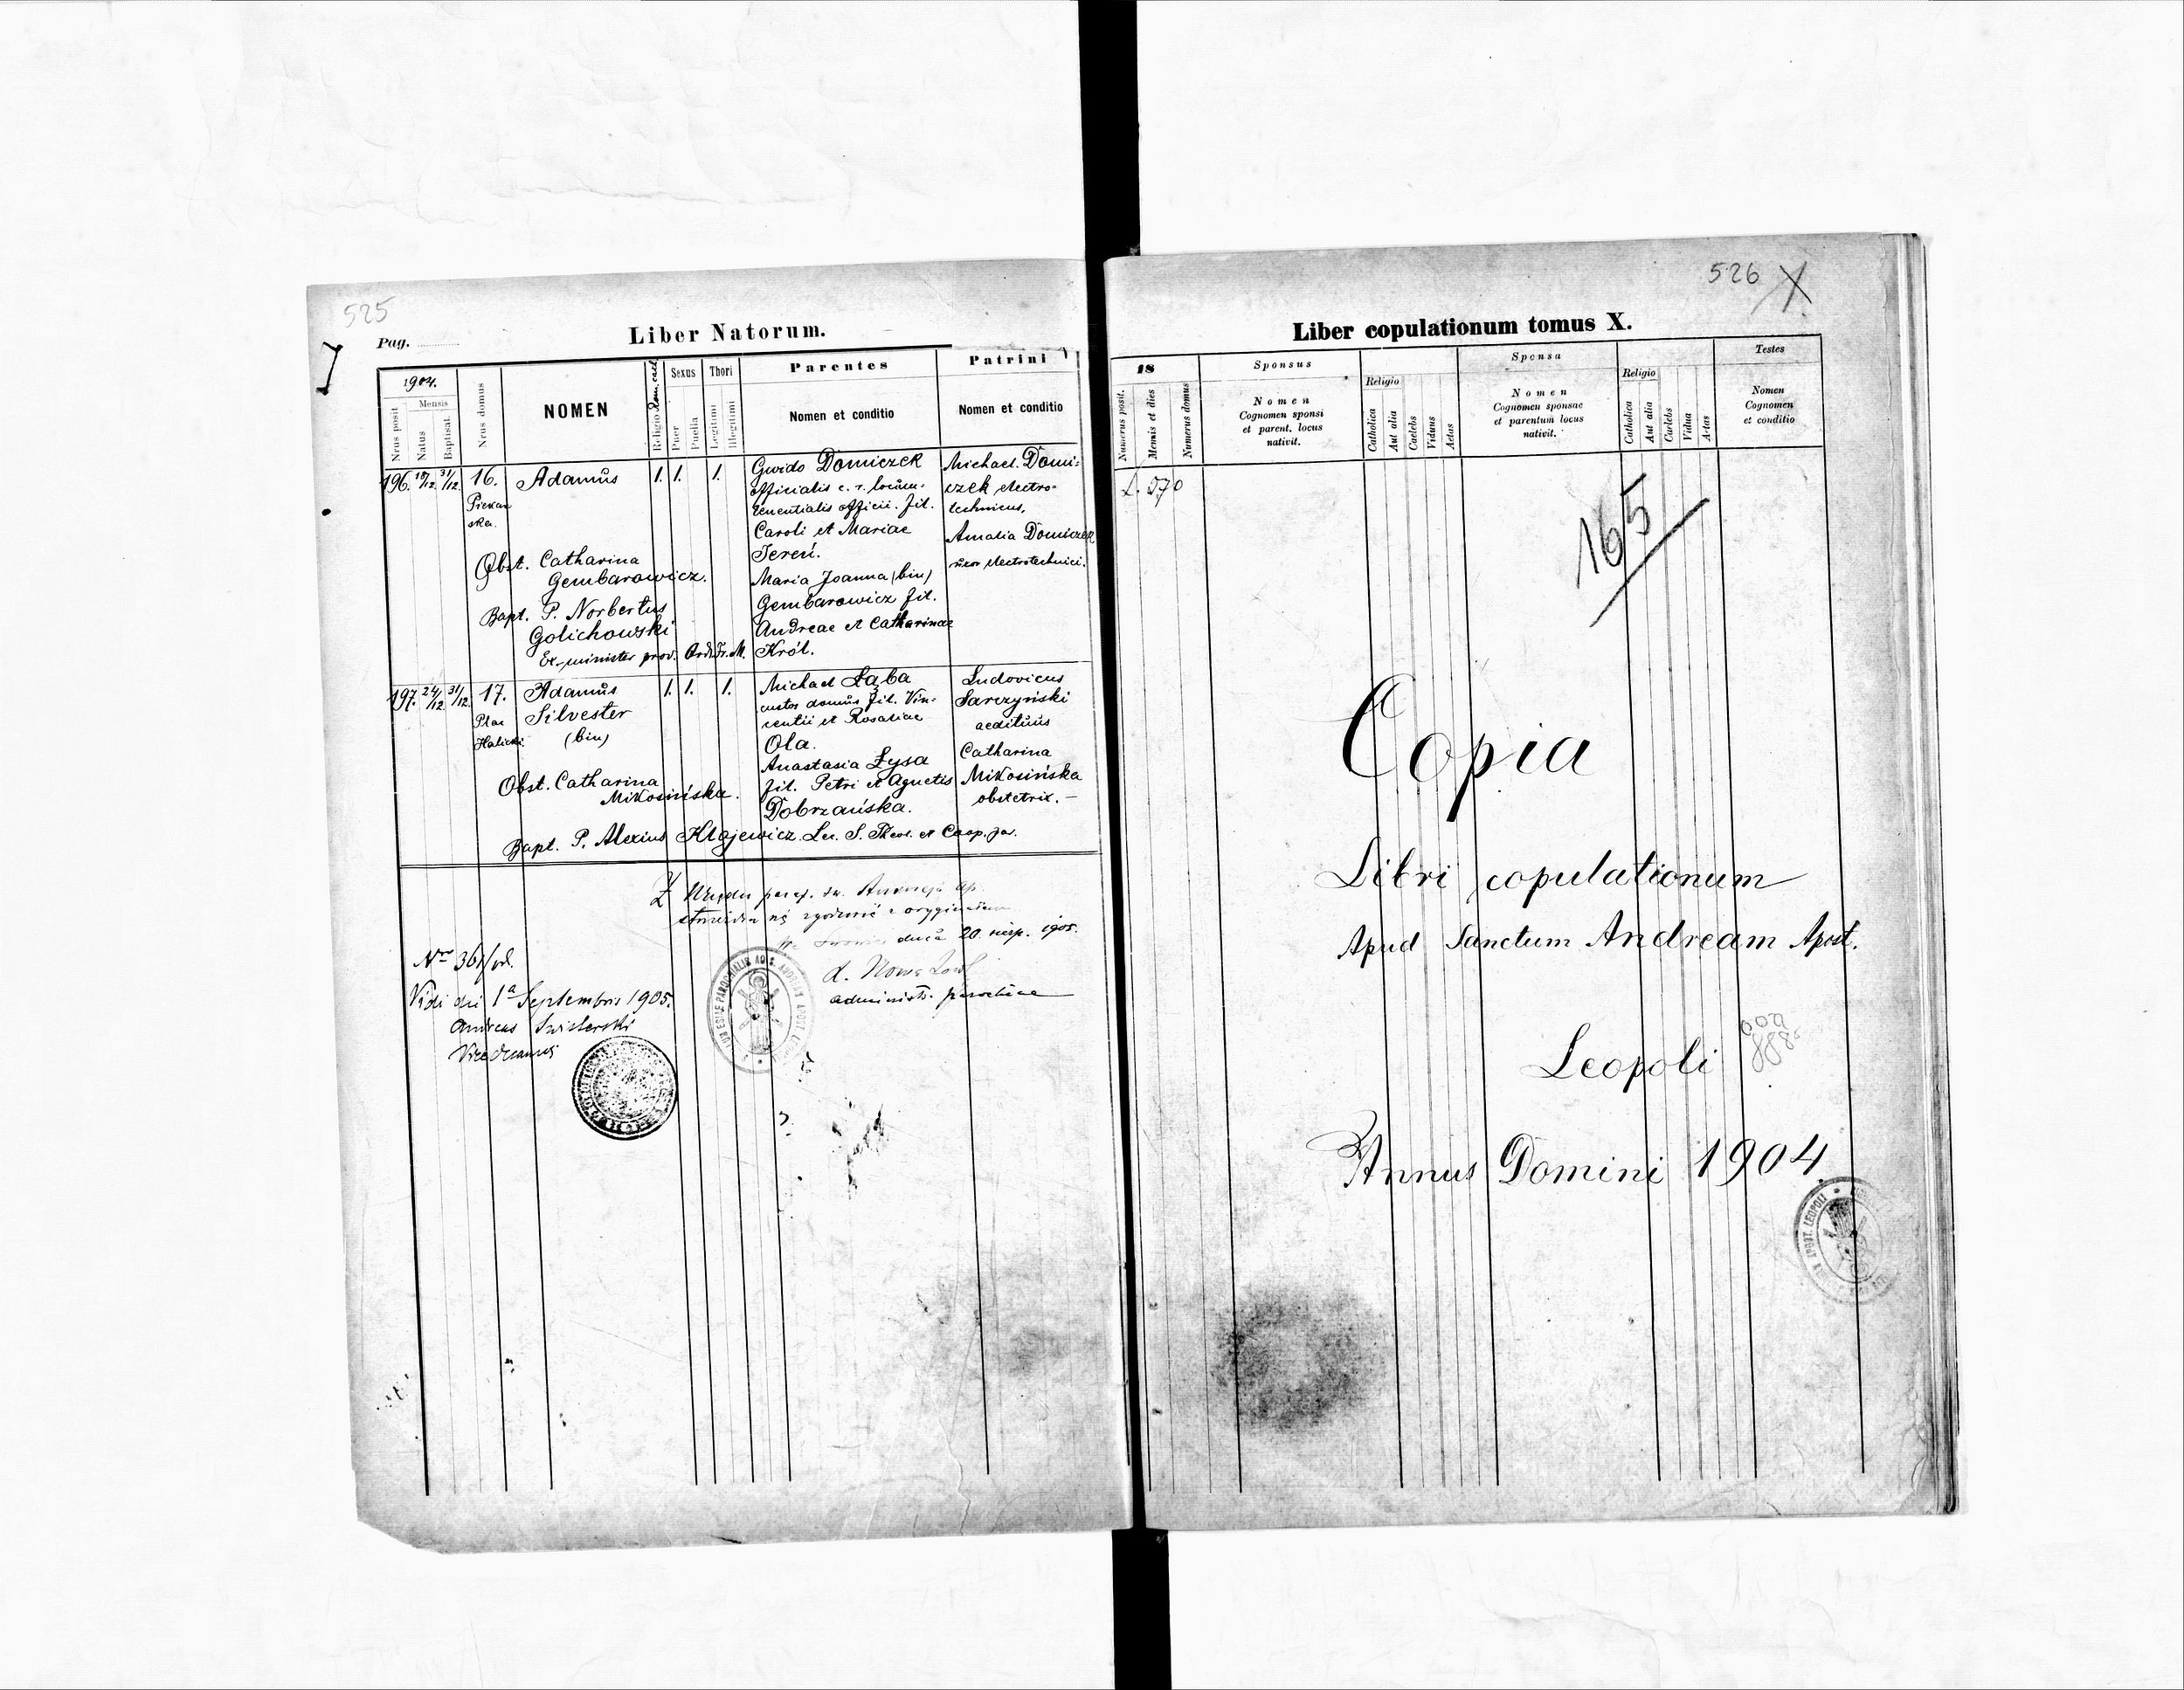 525
Pag.
Liber Natorum.
1904.
Nrus posit
Mensis
Natus
Baptisat.
Nrus domus
NOMEN
Religio Rom. cath.
Sexus
Puer
Puella
Thori
Legitimi
Illegitimi
Parentes
Nomen et conditio
Patrini
Nomen et conditio
196. 19/12. 31/12. 16. Adamus 1. 1. 1.
Piekar
ska.
Obst. Catharina
Gembarowicz.
Bapt. P. Norbertus
Golichowski
Ex-minister prov. Ord. Fr. M.
Gwido Domiczek
officialis c. r. locum-
tenentialis officii. fil.
Caroli et Mariae
Tereń.
Maria Joanna (bin)
Gembarowicz fil.
Andreae et Catharinae
Król.
Michael. Domi-
czek electro-
technicus.
Amalia Domiczek
uxor electrotechnici.
197. 24/12. 31/12. 17. Adamus 1. 1. 1.
Plac
Halicki.
Silvester
(bin)
Obst. Catharina
Mikosińska.
Michael Łaba
custos domus fil. Vin-
centii et Rosaliae
Ola.
Anastasia Łysa
fil. Petri et Agnetis
Dobrzańska.
Ludovicus
Sarczyński
aedituus
Catharina
Mikosińska
obstetrix. —
Bapt. P. Alexius Klajewicz. Lec. S. Theol. et Coop. par.
Z Urzędu paraf. św. Andrzeja Ap.
stwierdza się zgodność z oryginałem
dnia 20. sierp. 1905.
administr. parochiae
Nr 361/vd.
Vidi die 1a Septembris 1905.
Andreas
Vicedecanus
526
Liber copulationum tomus X.
18
Numerus posit.
Mensis et dies
Numerus domus
Sponsus
Nomen
Cognomen sponsi
et parent. locus
nativit.
Religio
Catholica
Aut alia
Caelebs
Viduus
Aetas
Sponsa
Nomen
Cognomen sponsae
et parentum locus
nativit.
Religio
Catholica
Aut alia
Caelebs
Vidua
Aetas
Testes
Nomen
Cognomen
et conditio
165
Copia
Libri copulationum
Apud Sanctum Andream Apost.
Leopoli
Annus Domini 1904.